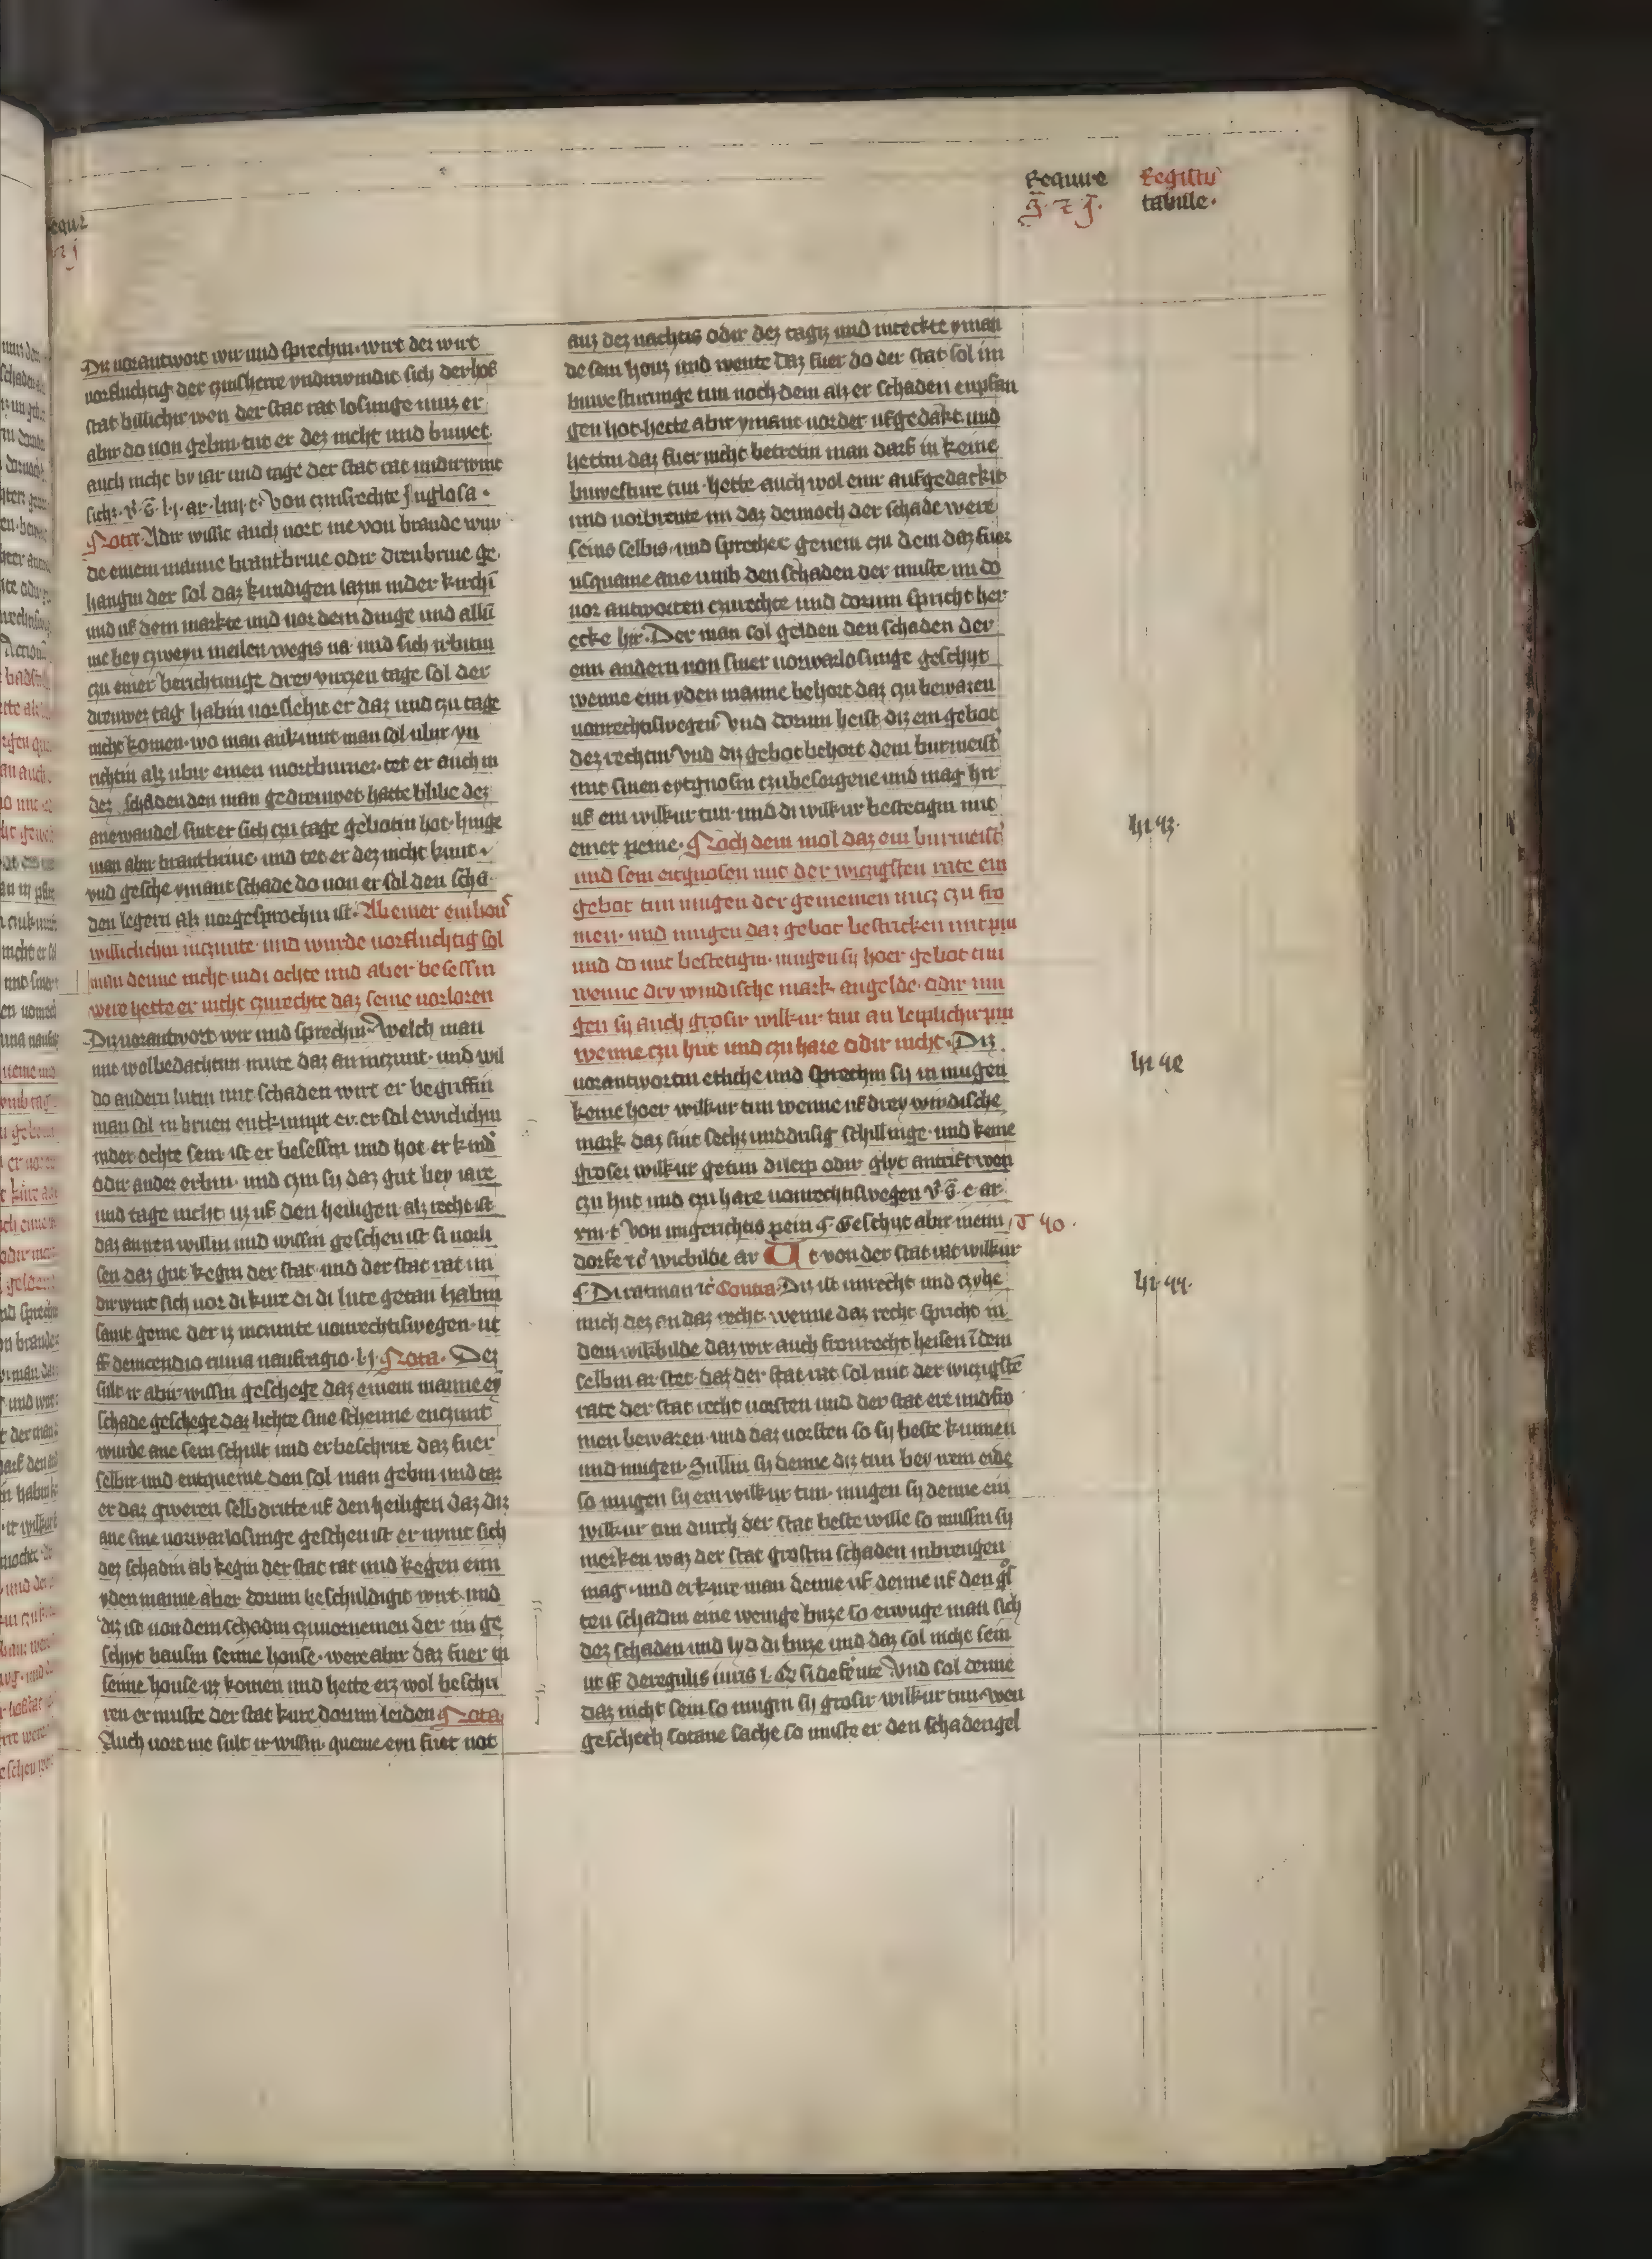 Require Registrum
tabule.
Diz uorantwort wir und sprechin. wirt der wirt
uorfluchtig der czinsherre undirwindit sich der hof
stat billichir wen der stat rat losunge muz er
abir do uon gebin tut er dez nicht und buwet
auch nicht by iar und tage der stat rat undirwint
sich. von czinsrechte in glosa.
Nota. Adir wisse auch uort me von brande wur
de einem manne brantbriue odir dreubriue ge
hangin der sol daz kundigen lazin inder kirchin
und uf dem markte und uor dem dinge und allin
me bey czweyn meilen wegis na und sich irbitin
czu einer berichtunge drey virczen tage sol der
dreuwer tag habin uorslehit er daz und czu tage
nicht komen. wo man ankumt man sol ubir yn
richtin alz ubir einen mortburner. tet er auch in
dez schaden den man gedreuwet hatte blibe dez
anewandel sint er sich czu tage gebotin hot. hinge
man abir brantbriue und tet er dez nicht kunt
und gesche ymant schade do uon er sol den scha
den legern alz uorgesprochin ist. Ab einer ein hous
willichlichin inczunte und wurde uorfluchtig sol
man denne nicht indi ochte und aber besessin
were hette er nicht czurechte daz seine uorloren
Diz uorantwort wir und sprechin. Welch man
mit wolbedachtim mute daz an inczunt. und wil
do andern lutin mit schaden wirt er begriffin
man sol in brnen entkumpt er. er sol ewiclichin
inder ochte sein ist er besessin und hot er kindir
odir ander erbin. und czin sy daz gut bey iare
und tage nicht uz uf den heiligen alz recht ist
daz an iren willin und wissin geschen ist si uorli
sen daz gut kegin der stat und der stat rat un
dirwint sich uor di kure di di lute getan habin
samt geme der iz incznte uonrechtiswegen. ut
ff de incendio ruina naufragio. l. j. Nota. Dez
sult ir abir wissin geschege daz einem manne ey
schade geschege daz lichte sine scheune enczunt
wurde ane sein schult und er beschrue daz fuer
selbir und entqueme den sol man gebin und tar
er daz gweren selbdritte uf den heiligen daz diz
ane sine uorwarlosunge geschen ist er nymt sich
dez schadin ab kegin der stat rat und kegen eim
yden manne aber dorum beschuldigit wirt. und
diz ist uon dem schadin czuuornemen der im ge
schyt bausin seime house. were abir daz fuer in
seime house uz komen und hette erz wol beschri
ren er muste der stat kure dorum leiden Nota
Auch uort me sult ir wissin. queme eyn fuer uot
auz dez nachtis odir dez tagis und mrekte yman
de sein houz und wente daz fuer do der stat sol im
buwe sturunge tun noch dem alz er schaden enpfan
gen hot. hette abir ymant uorder ufgedakt und
hettin daz fuer nicht betretin man darf in keine
buwesture tun. hette auch wol einr aufgedackit
und uorbrente im daz dennoch der schade were
seins selbis. und spreche genem czu dem daz fuer
usquame ane umb den schaden der muste im do
uor antworten czurechte und dorum spricht her
ecke hir. Der man sol gelden den schaden der
eim andern uon siner uorwarlosunge geschyt
wenne eim yden manne behort daz czu bewaren
uonrechtiswegen. Vnd dorum heist diz ein gebot
dez rechtin. Vnd diz gebot behort dem burmeistir
mit sinen eytgnosin czubesorgene und mag hir
uf ein wilkur tun. und di wilkur bestetigin mit
einer peine. Noch dem mol daz ein burmeistir
und sein eitgnosen mit der wiczigsten rate ein
gebot tun mugen der gemeinen nucz czu fro
men. und mugen daz gebot bestricken mit pin
und do mit bestetigin. mugen sy hoer gebot tun
wenne dry windische mark angelde. odir mu
gen sy auch grosir wilkur tun an leiplichir pin
wenne czu hut und czu hare odir nicht. Diz
uorantwortin etliche und sprechin sy in mugen
keine hoer wilkur tun wenne uf drey windische
mark daz sint sechz und drisig schillinge. und keine
groser wilkur getun di leip odir glyt antrift wen
czu hut und czu hare uonrechtiswegen
Von ungerichtis pein Geschyt abir inem
dorfe wichbilde ar t von der stat rat wilkur
Di ratman Contra. Diz ist unrecht und czyhe
mich dez an daz recht. wenne daz recht spricht in
dem wikbilde daz wir auch fronrecht heisen in dem
selbin ar. stet. daz der stat rat sol mit der wiczigsten
rate der stat recht uorsten und der stat ere und fro
men bewaren und daz uorsten so sy beste kunnen
und mugen. Sullin sy denne diz tun bey irem eide
so mugen sy ein wilkur tun. mugen sy denne ein
wilkur tun durch der stat beste wille so mussin sy
merken waz der stat grostin schaden inbrengen
mag. und erkure man denne uf denne uf den gros
ten schadin eine wenige buze so erwuge man sich
dez schaden und lyd di buze und daz sol nicht sein
ut ff de regulis iuris l. Vnd sol denne
daz nicht sein so mugin sy grosir wilkur tun. wen
geschech sotane sache so muste er den schaden gel